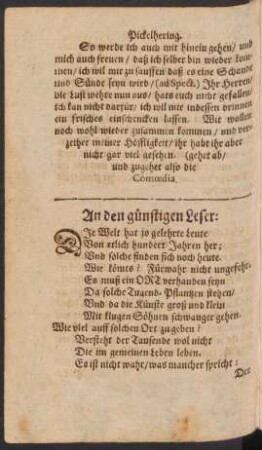 Pickelhering.
So werde ich auch mit hinein gehen/ und
mich auch freuen/ daß ich selber bin wieder kom-
men/ ich wil mir zu sauffen daß es eine Schande
und Sünde seyn wird/ (ad Spect.) Ihr Herren/
die Lust wehre nun aus/ hats euch nicht gefallen/
ich kan nicht darfür/ ich wil mir indessen drinnen
ein frisches einschencken lassen. Wir wollen
noch wohl wieder zusammen kommen/ und ver-
zeihet meiner Höffligkeit/ ihr habt ihr aber
nicht gar viel gesehen. (gehet ab/
und zugehet also die
Comœdia.
An den günstigen Leser:
DIe Welt hat so gelehrte Leute
Von etlich hundert Jahren her;
Und solche finden sich noch heute.
Wie kömts? Fürwahr nicht ungefehr.
Es muß ein ORT verhanden seyn
Da solche Tugend-Pflantzen stehen/
Und da die Künste groß und klein
Mit klugen Söhnen schwanger gehen.
Wie viel auff solchen Ort zugeben?
Versteht der Tausende wol nicht
Die im gemeinen Leben leben.
Es ist nicht wahr/ was mancher spricht:
Der